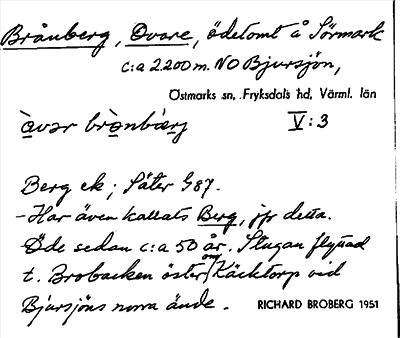 Brånberg, Ovare, ödetomt å Sörmark
c:a 2200 m. NO Bjursjön,
Östmarks sn, Fryksdals hd, Värml. län
àvər brò̱nbærj V:3
Berg ek; Säter G87.
- Har även kallats Berg, jfr detta.
Öde sedan c:a 50 år. Stugan flyttad
t. Brobacken öster om Käcktorp vid
Bjursjöns norra ände. RICHARD BROBERG 1951